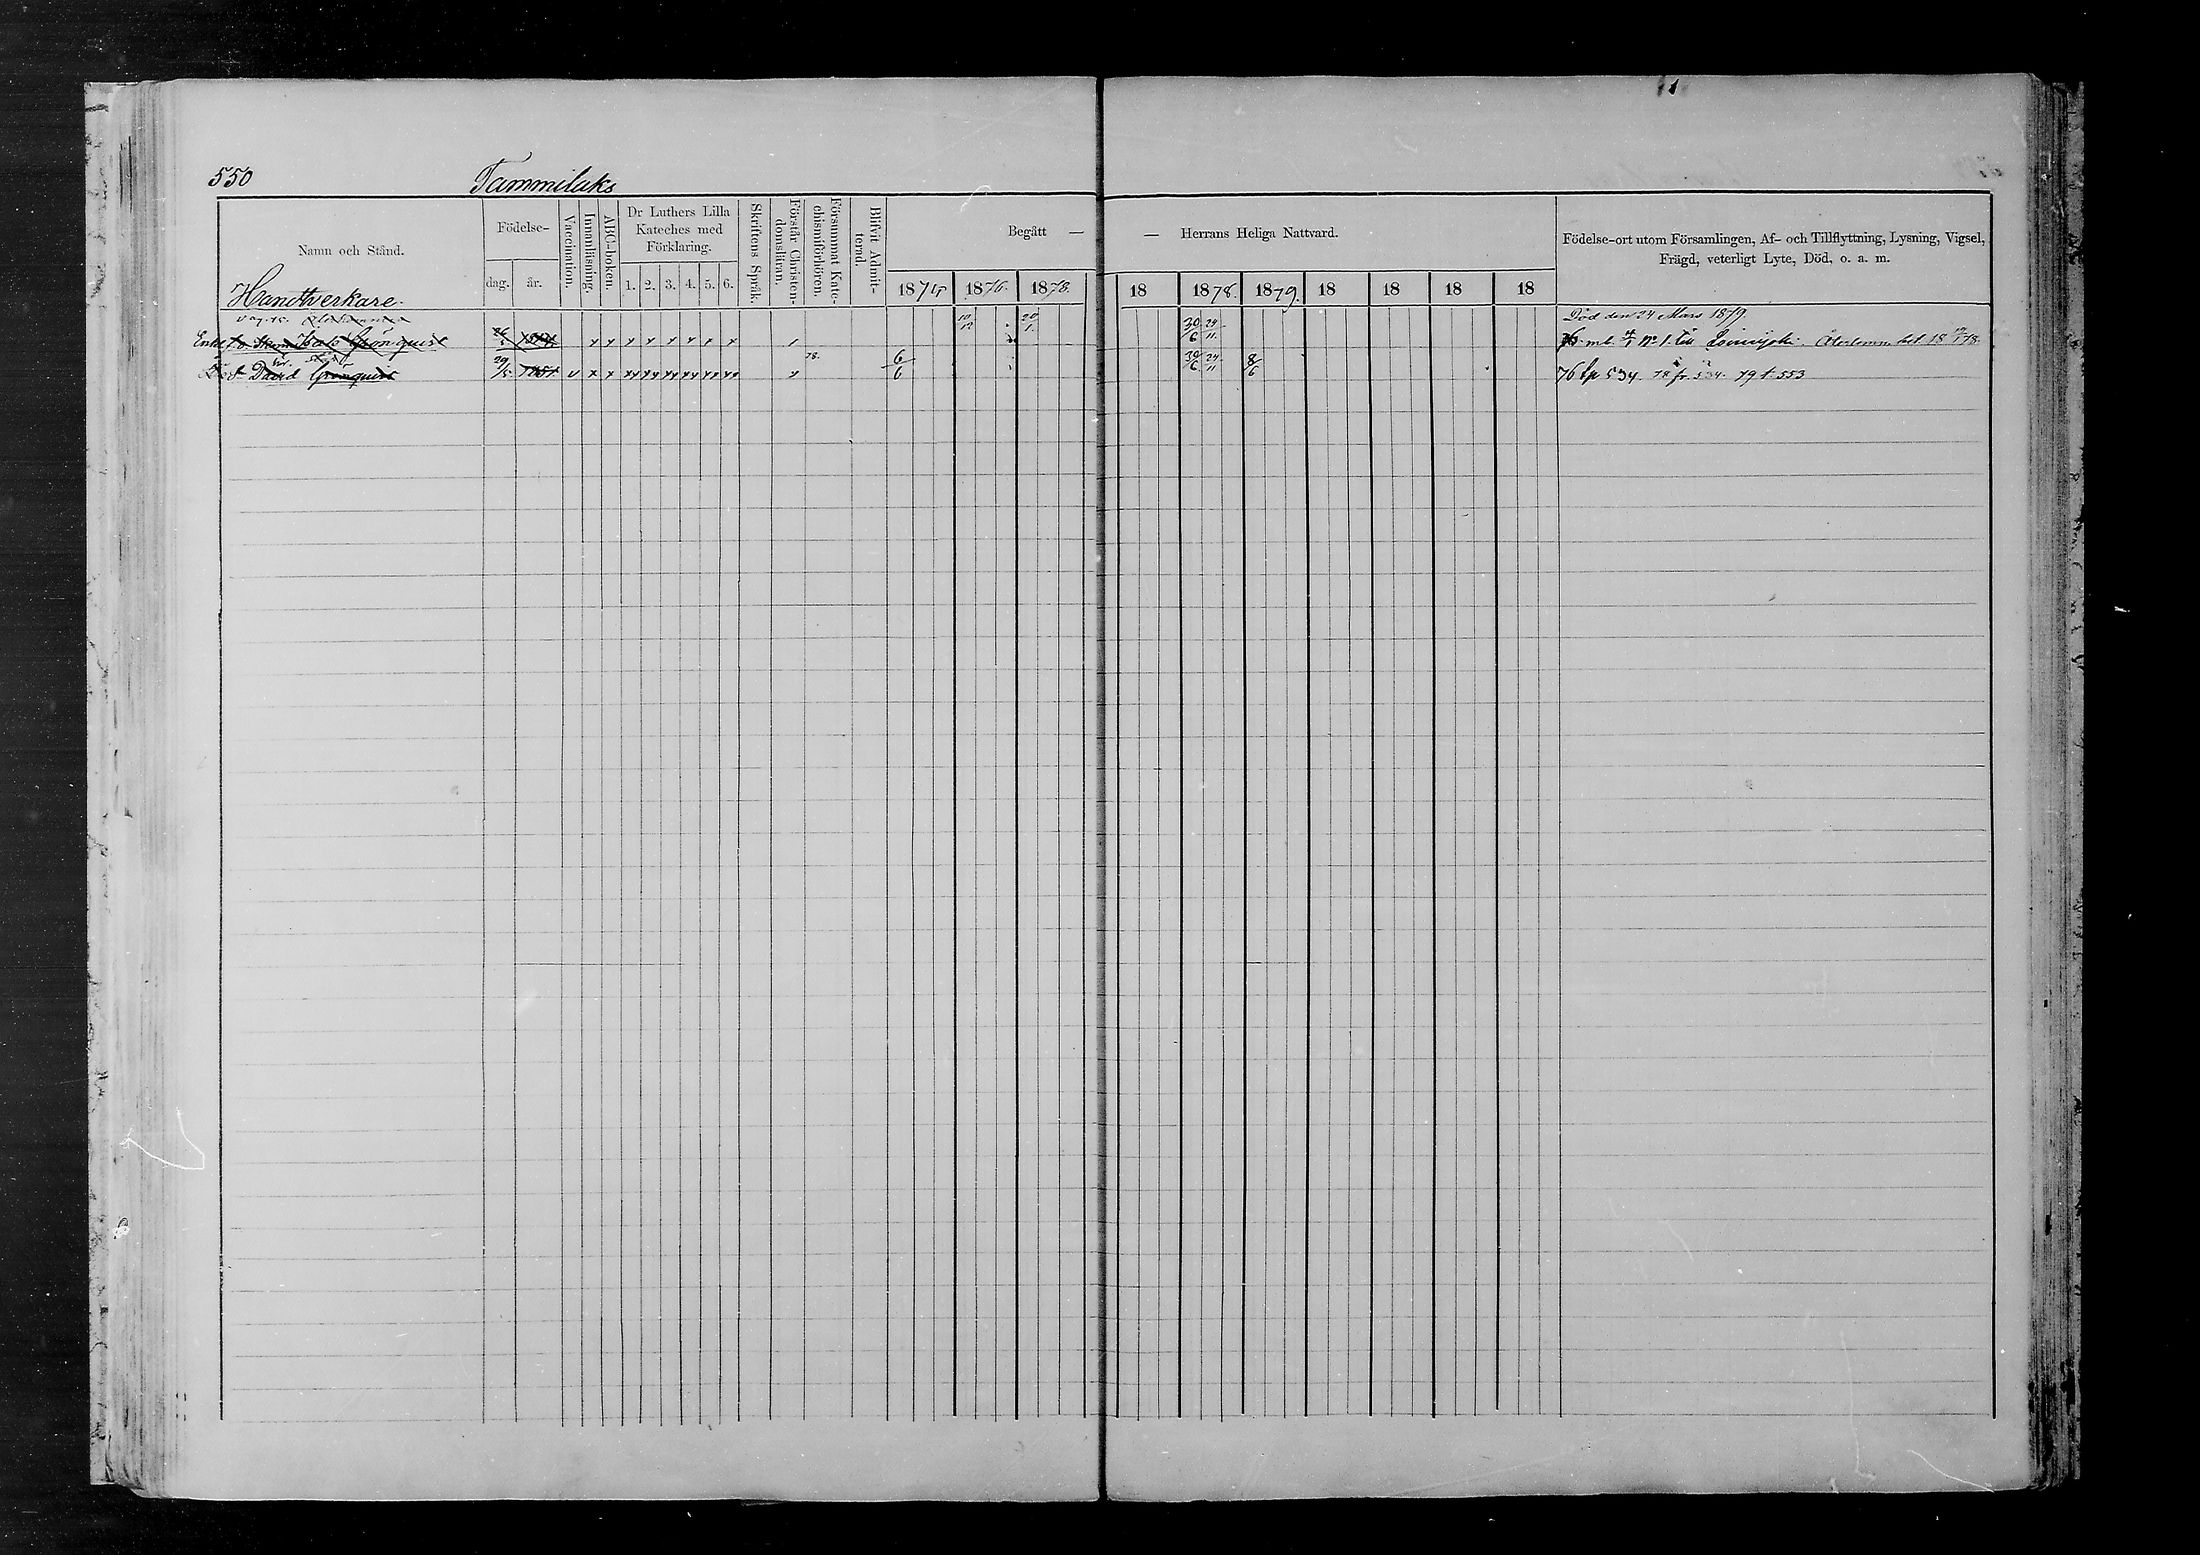 550 Tammiluks
Namn och Stånd.
Födelse-
dag. år.
Vaccination.
Innanläsning.
ABC-boken.
Dr Luthers Lilla
Kateches med
Förklaring.
1. 2. 3. 4. 5. 6.
Skriftens Språk.
Förstår Christen-
domsläran.
Försummat Kate-
chismiförhören.
Blifvit Admit-
terad.
Begått — — Herrans Heliga Nattvard.
18 1876. 1878. 18 1878. 1879. 18 18 18 18
Födelse-ort utom Församlingen, Af- och Tillflyttning, Lysning, Vigsel,
Frägd, veterligt Lyte, Död, o. a. m.
Handtverkare.
10/12 20/1 30/6 24/11 Död den 24 Mars 1879.
Enkl Grönquist 76 N:o 1. till
David Grönquist 29/5 78. 6/6 30/6 24/11 8/6 76 tp 534. 78 fr. 534. 79 t. 553